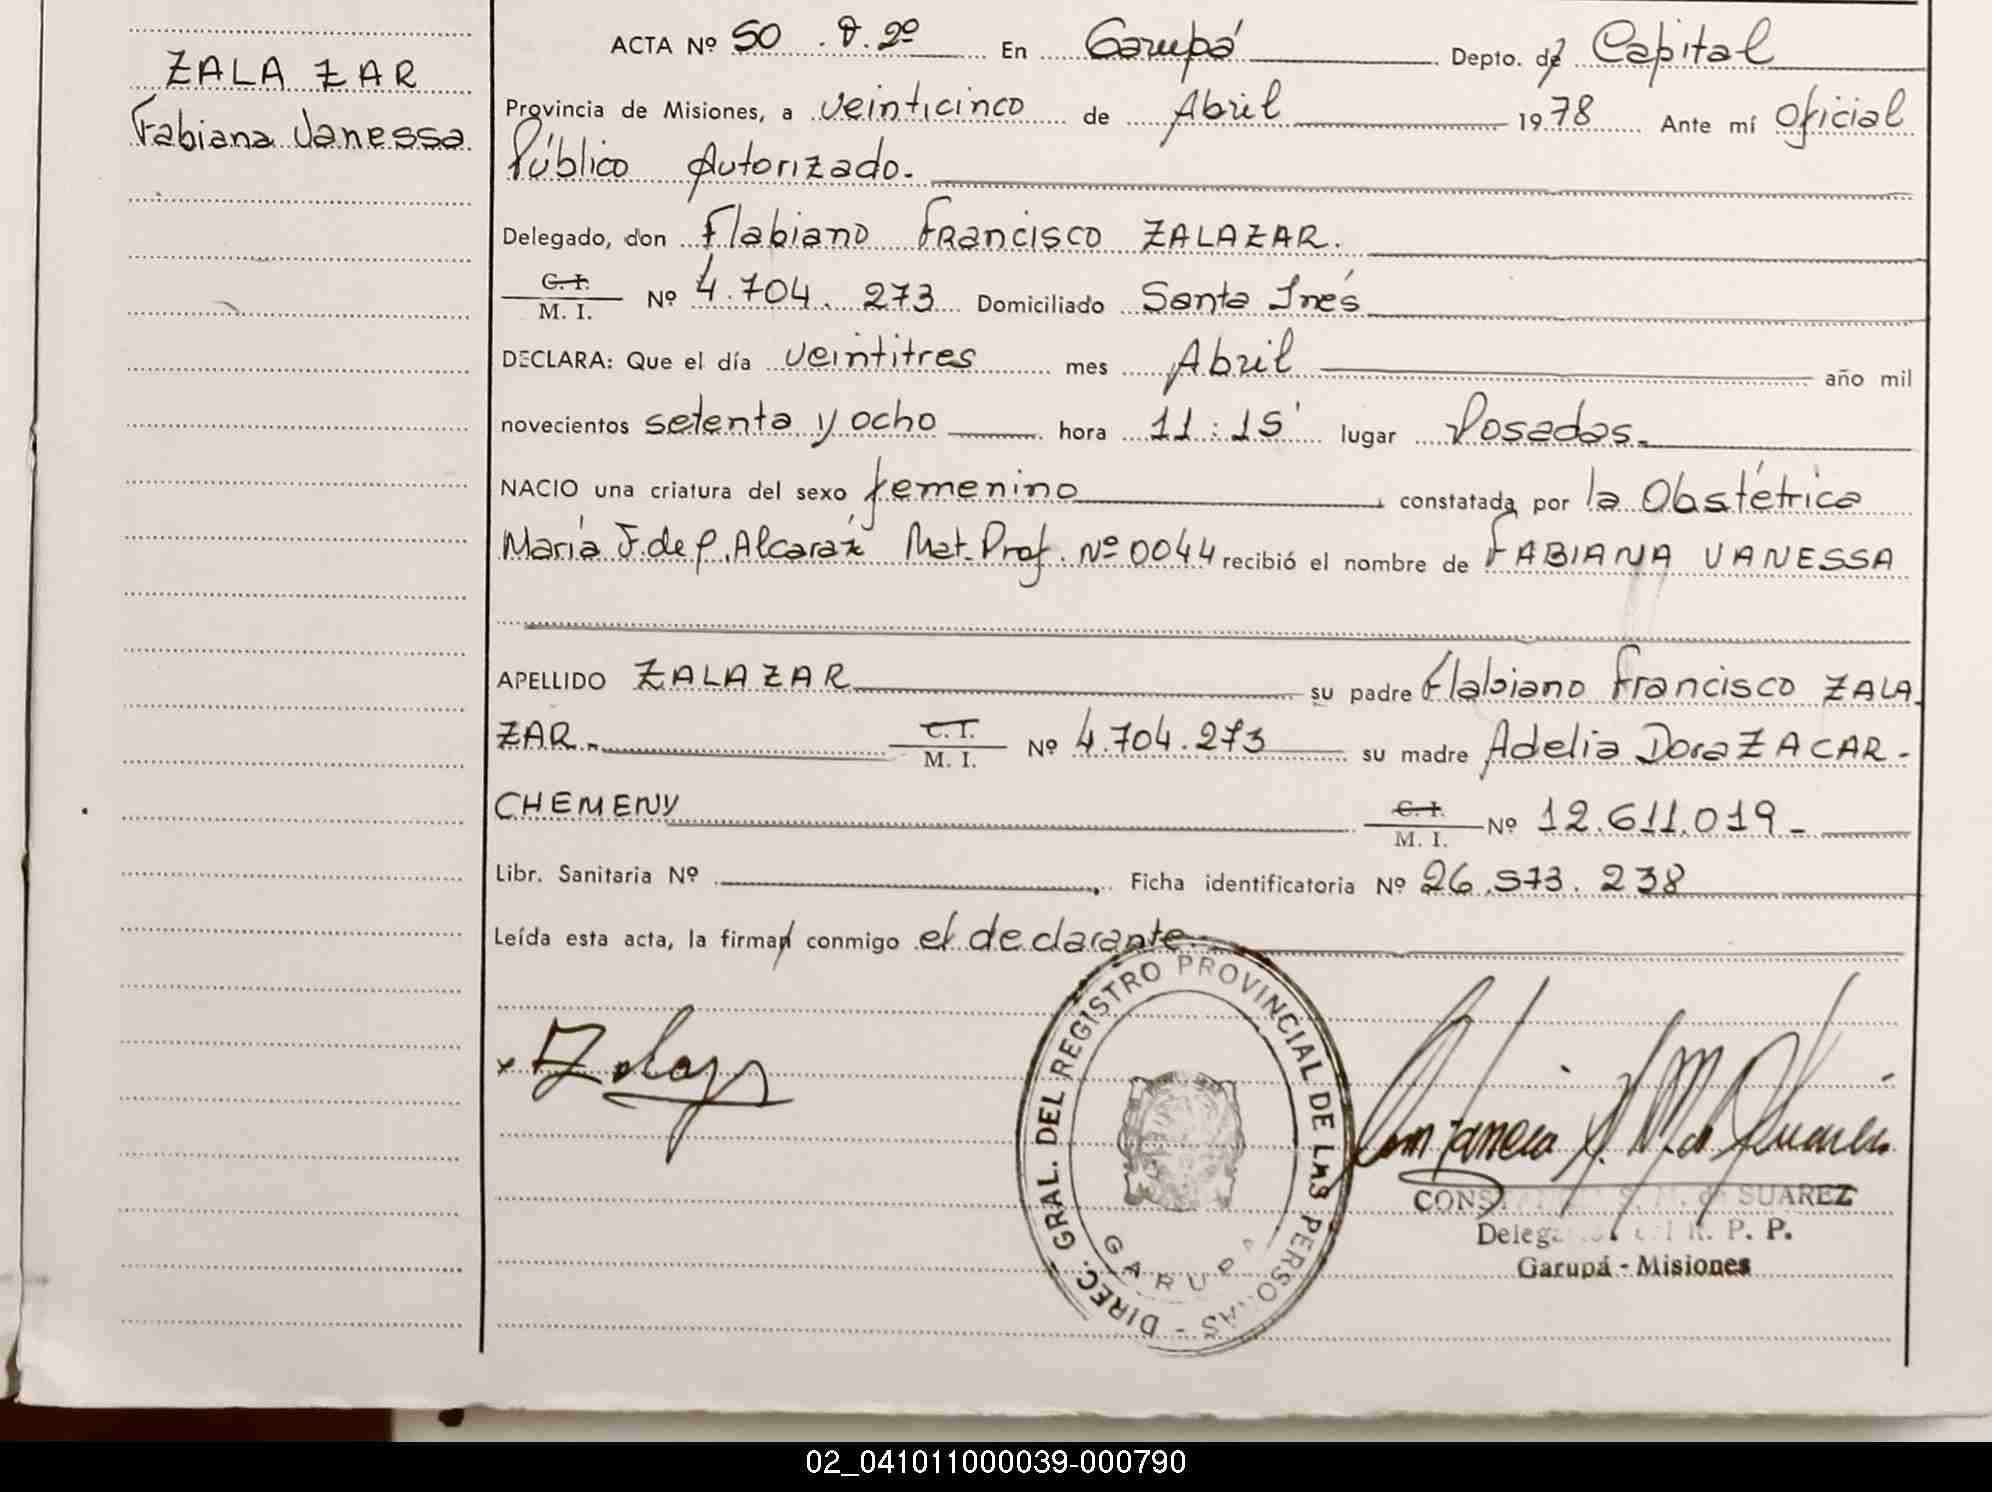 ZALAZAR
Fabiana Vanessa
ACTA Nº 50 . T. 2º En Garupá Depto. de Capital
Provincia de Misiones, a veinticinco de Abril 1978 Ante mí Oficial
Público Autorizado.
Delegado, don Flabiano Francisco ZALAZAR.
C. I.
M. I. Nº 4.704.273 Domiciliado Santa Inés
DECLARA: Que el día veintitres mes Abril año mil
novecientos setenta y ocho hora 11:15' lugar Posadas.
NACIO una criatura del sexo femenino constatada por la Obstétrica
María F. de P. Alcaráz Mat. Prof. Nº 0044 recibió el nombre de FABIANA VANESSA
APELLIDO ZALAZAR su padre Flabiano Francisco ZALA
ZAR.- C. I.
M. I. Nº 4.704.273 su madre Adelia Dora ZACAR-
CHEMENY C. I.
M. I. Nº 12.611.019-
Libr. Sanitaria Nº Ficha identificatoria Nº 26.573.238
Leída esta acta, la firman conmigo el declarante.
DIREC. GRAL. DEL REGISTRO PROVINCIAL DE LAS PERSONAS -
GARUPA
CONSTANCIA S. M. de SUAREZ
R. P. P.
Garupá - Misiones
02_041011000039-000790